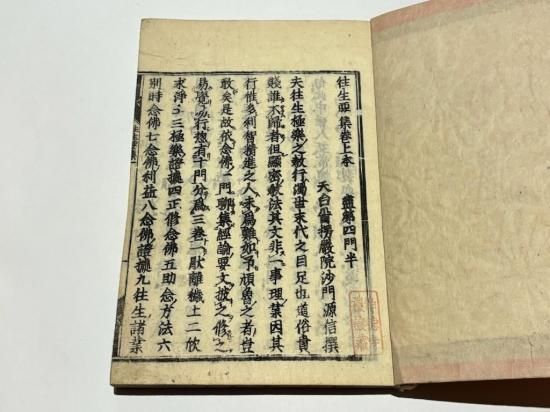 往生要集卷上本 盡第四門半
天台首楞嚴院沙門源信撰
夫往生極樂之敎行濁世末代之目足也道俗貴
賤誰不歸者但顯密敎法其文非一事理業因其
行惟多利智精進之人未爲難如予頑魯之者豈
敢矣是故依念佛一門聊集經論要文披之修之
易覺易行惣有十門分爲三卷一厭離穢土二欣
求淨土三極樂證據四正修念佛五助念方法六
別時念佛七念佛利益八念佛證據九往生諸業